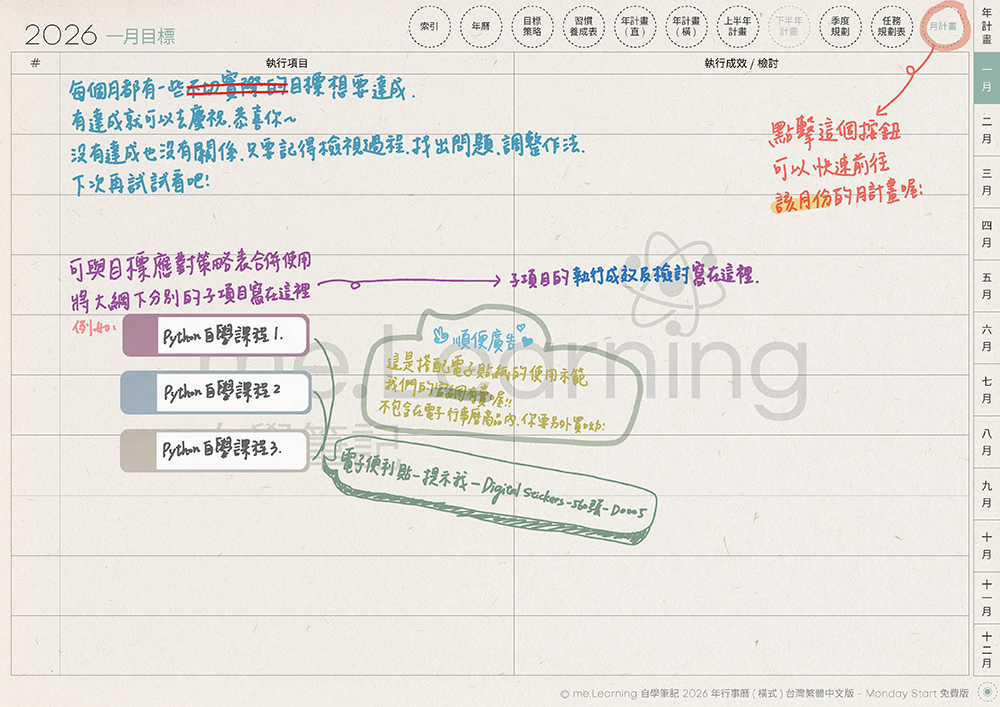 2026 一月目標
索引
年曆
目標策略
習慣養成表
年計畫(直)
年計畫(橫)
上半年計畫
下半年計畫
季度規劃
任務規劃表
月計畫
年計畫
一月
二月
三月
四月
五月
六月
七月
八月
九月
十月
十一月
十二月
# 執行項目 執行成效 / 檢討
每個月都有一些不切實際的目標想要達成.
有達成就可以去慶祝.恭喜你~
沒有達成也沒有關係.只要記得檢視過程.找出問題.調整作法.
下次再試試看吧!
點擊這個按鈕
可以快速前往
該月份的月計畫喔!
可與目標應對策略表合併使用
將大綱下分別的子項目寫在這裡
子項目的執行成效及檢討寫在這裡.
例如:
Python自學課程1.
Python自學課程2
Python自學課程3.
順便廣告
這是搭配電子貼紙的使用示範
我們的官網有賣喔!!
不包含在電子行事曆商品內.你要另外買呦!
電子便利貼-提示我-Digital Stickers-560張-D0005
me.Learning
自學筆記
© me.Learning 自學筆記 2026 年行事曆 ( 橫式 ) 台灣繁體中文版 - Monday Start 免費版